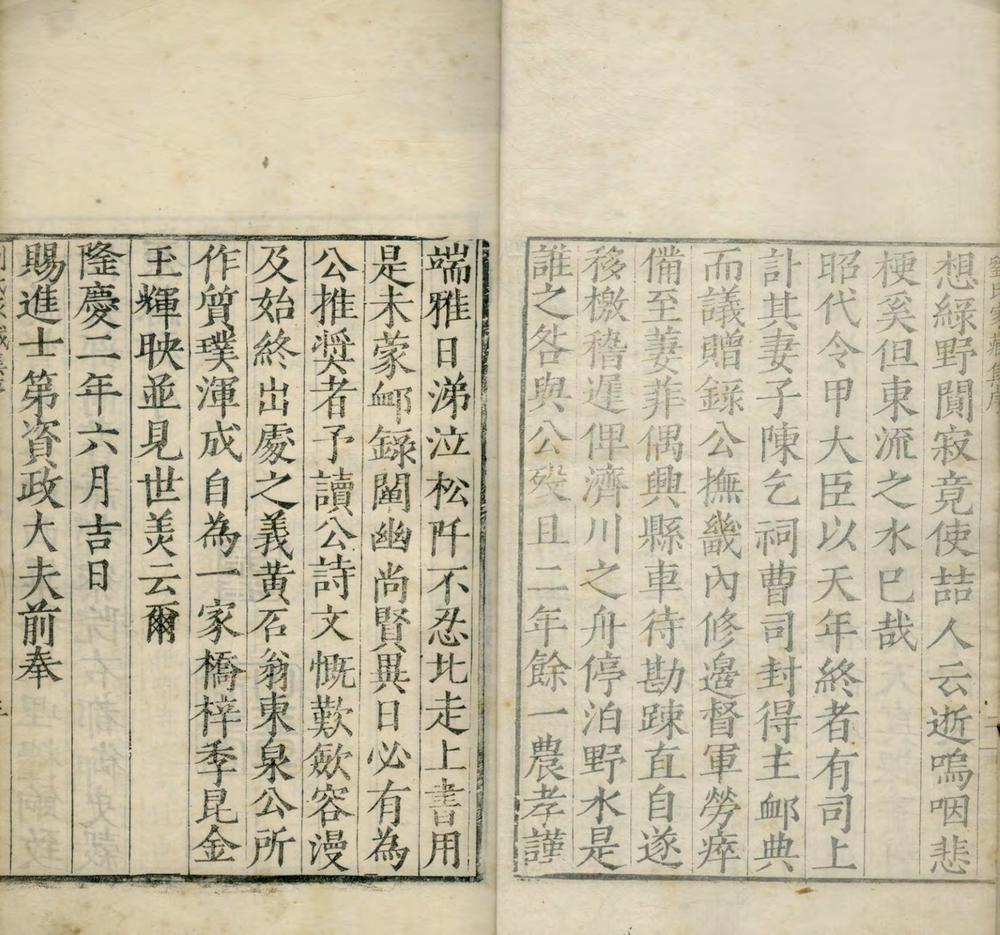 劉氏家藏集序
想綠野閴寂竟使喆人云逝嗚咽悲
梗奚但東流之水巳哉
昭代令甲大臣以天年終者有司上
計其妻子陳乞祠曹司封得主衈典
而議贈錄公撫畿內修邊督軍勞瘁
備至萋菲偶興縣車待勘踈直自遂
移檄稽遲俾濟川之舟停泊野水是
誰之咎與公歿且二年餘一農孝謹
端雅日涕泣松阡不忍北走上書用
是未蒙衈錄闡幽尚賢異日必有為
公推奬者予讀公詩文慨歎歛容漫
及始終出處之義黃石翁東泉公所
作質璞渾成自為一家橋梓季昆金
玉輝映並見世羙云爾
隆慶二年六月吉日
賜進士第資政大夫前奉